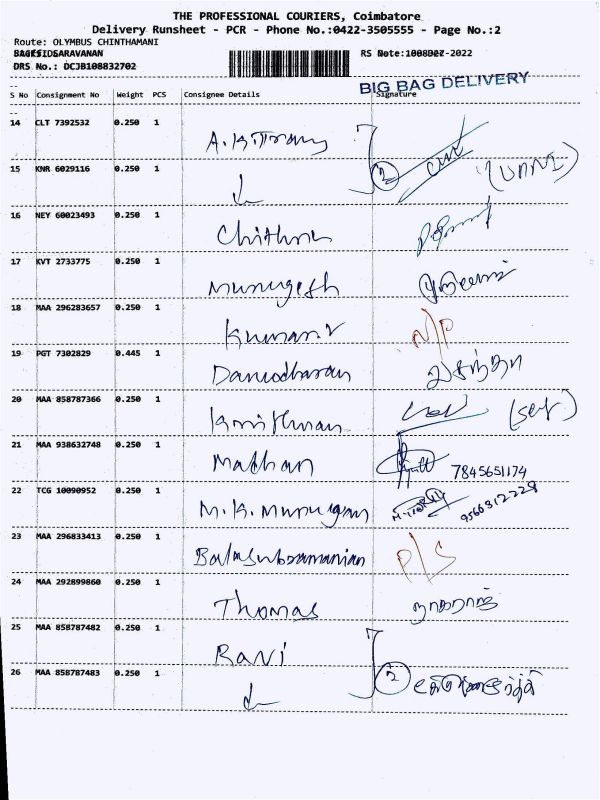 THE PROFESSIONAL COURIERS, Coimbatore
Delivery Runsheet - PCR - Phone No.:0422-3505555 - Page No.:2
Route: OLYMBUS CHINTHAMANI
RS Note: -2022
DRS No.: DCJB108832702
BIG BAG DELIVERY
S No Consignment No Weight PCS Consignee Details Signature
14 CLT 7392532 0.250 1
15 KNR 6029116 0.250 1 2 (UNNI)
16 NEY 60023493 0.250 1 Chithra
17 KVT 2733775 0.250 1 Murugesh
18 MAA 296283657 0.250 1 Kumar.V N/P
19 PGT 7302829 0.445 1 Damodharan வசந்தா
20 MAA 858787366 0.250 1 (self)
21 MAA 938632748 0.250 1 Mathan 7845651174
22 TCG 10090952 0.250 1 M.K.Murugan 9566312228
23 MAA 296833413 0.250 1 Balasubramanian P/S
24 MAA 292899860 0.250 1 Thomas நாகராஜ்
25 MAA 858787482 0.250 1 Ravi
26 MAA 858787483 0.250 1 2